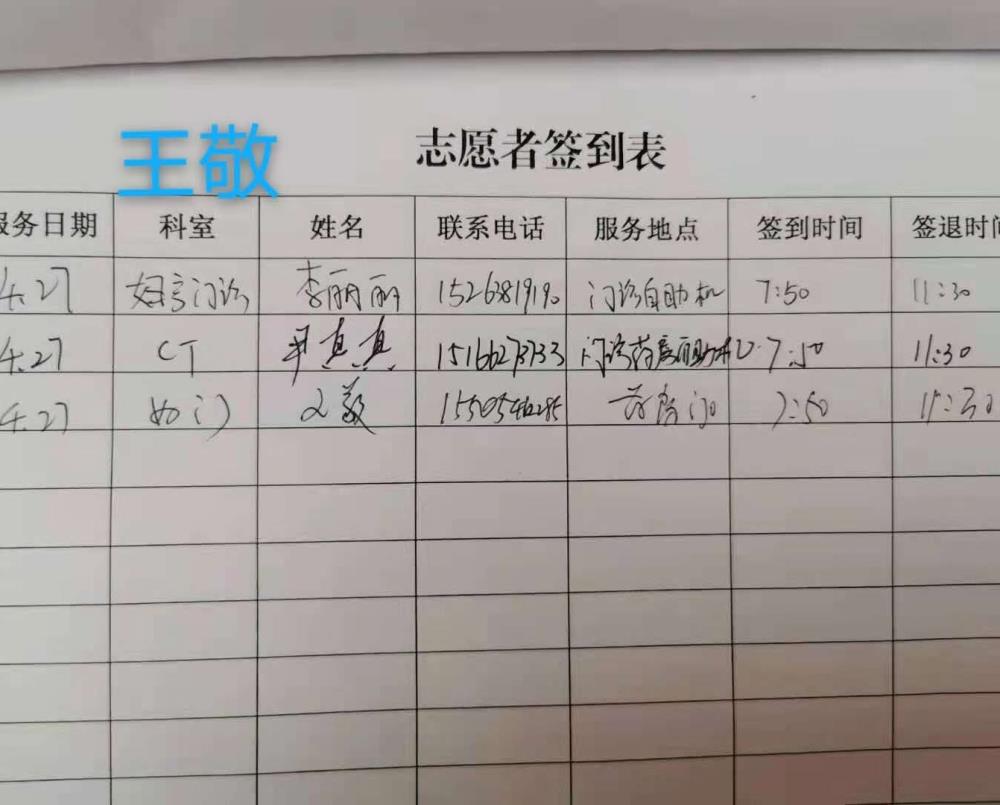 王敬
志愿者签到表
服务日期 科室 姓名 联系电话 服务地点 签到时间 签退时间
4.27 妇产门诊 李丽丽 15263819190 门诊自助机 7:50 11:30
4.27 CT 尹真真 15166273733 门诊药房自助机 7:50 11:30
4.27 妇门 王敬 药房门 7:50 11:30